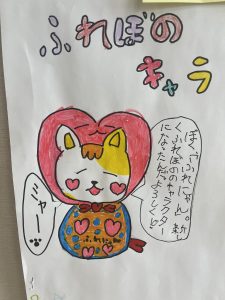 ふれぼの
キャラ
ぼく、「ふれにゃん」。新し
くふれぼのキャラクター
になったんだ。よろしくね!
ミャー
ふれにゃん